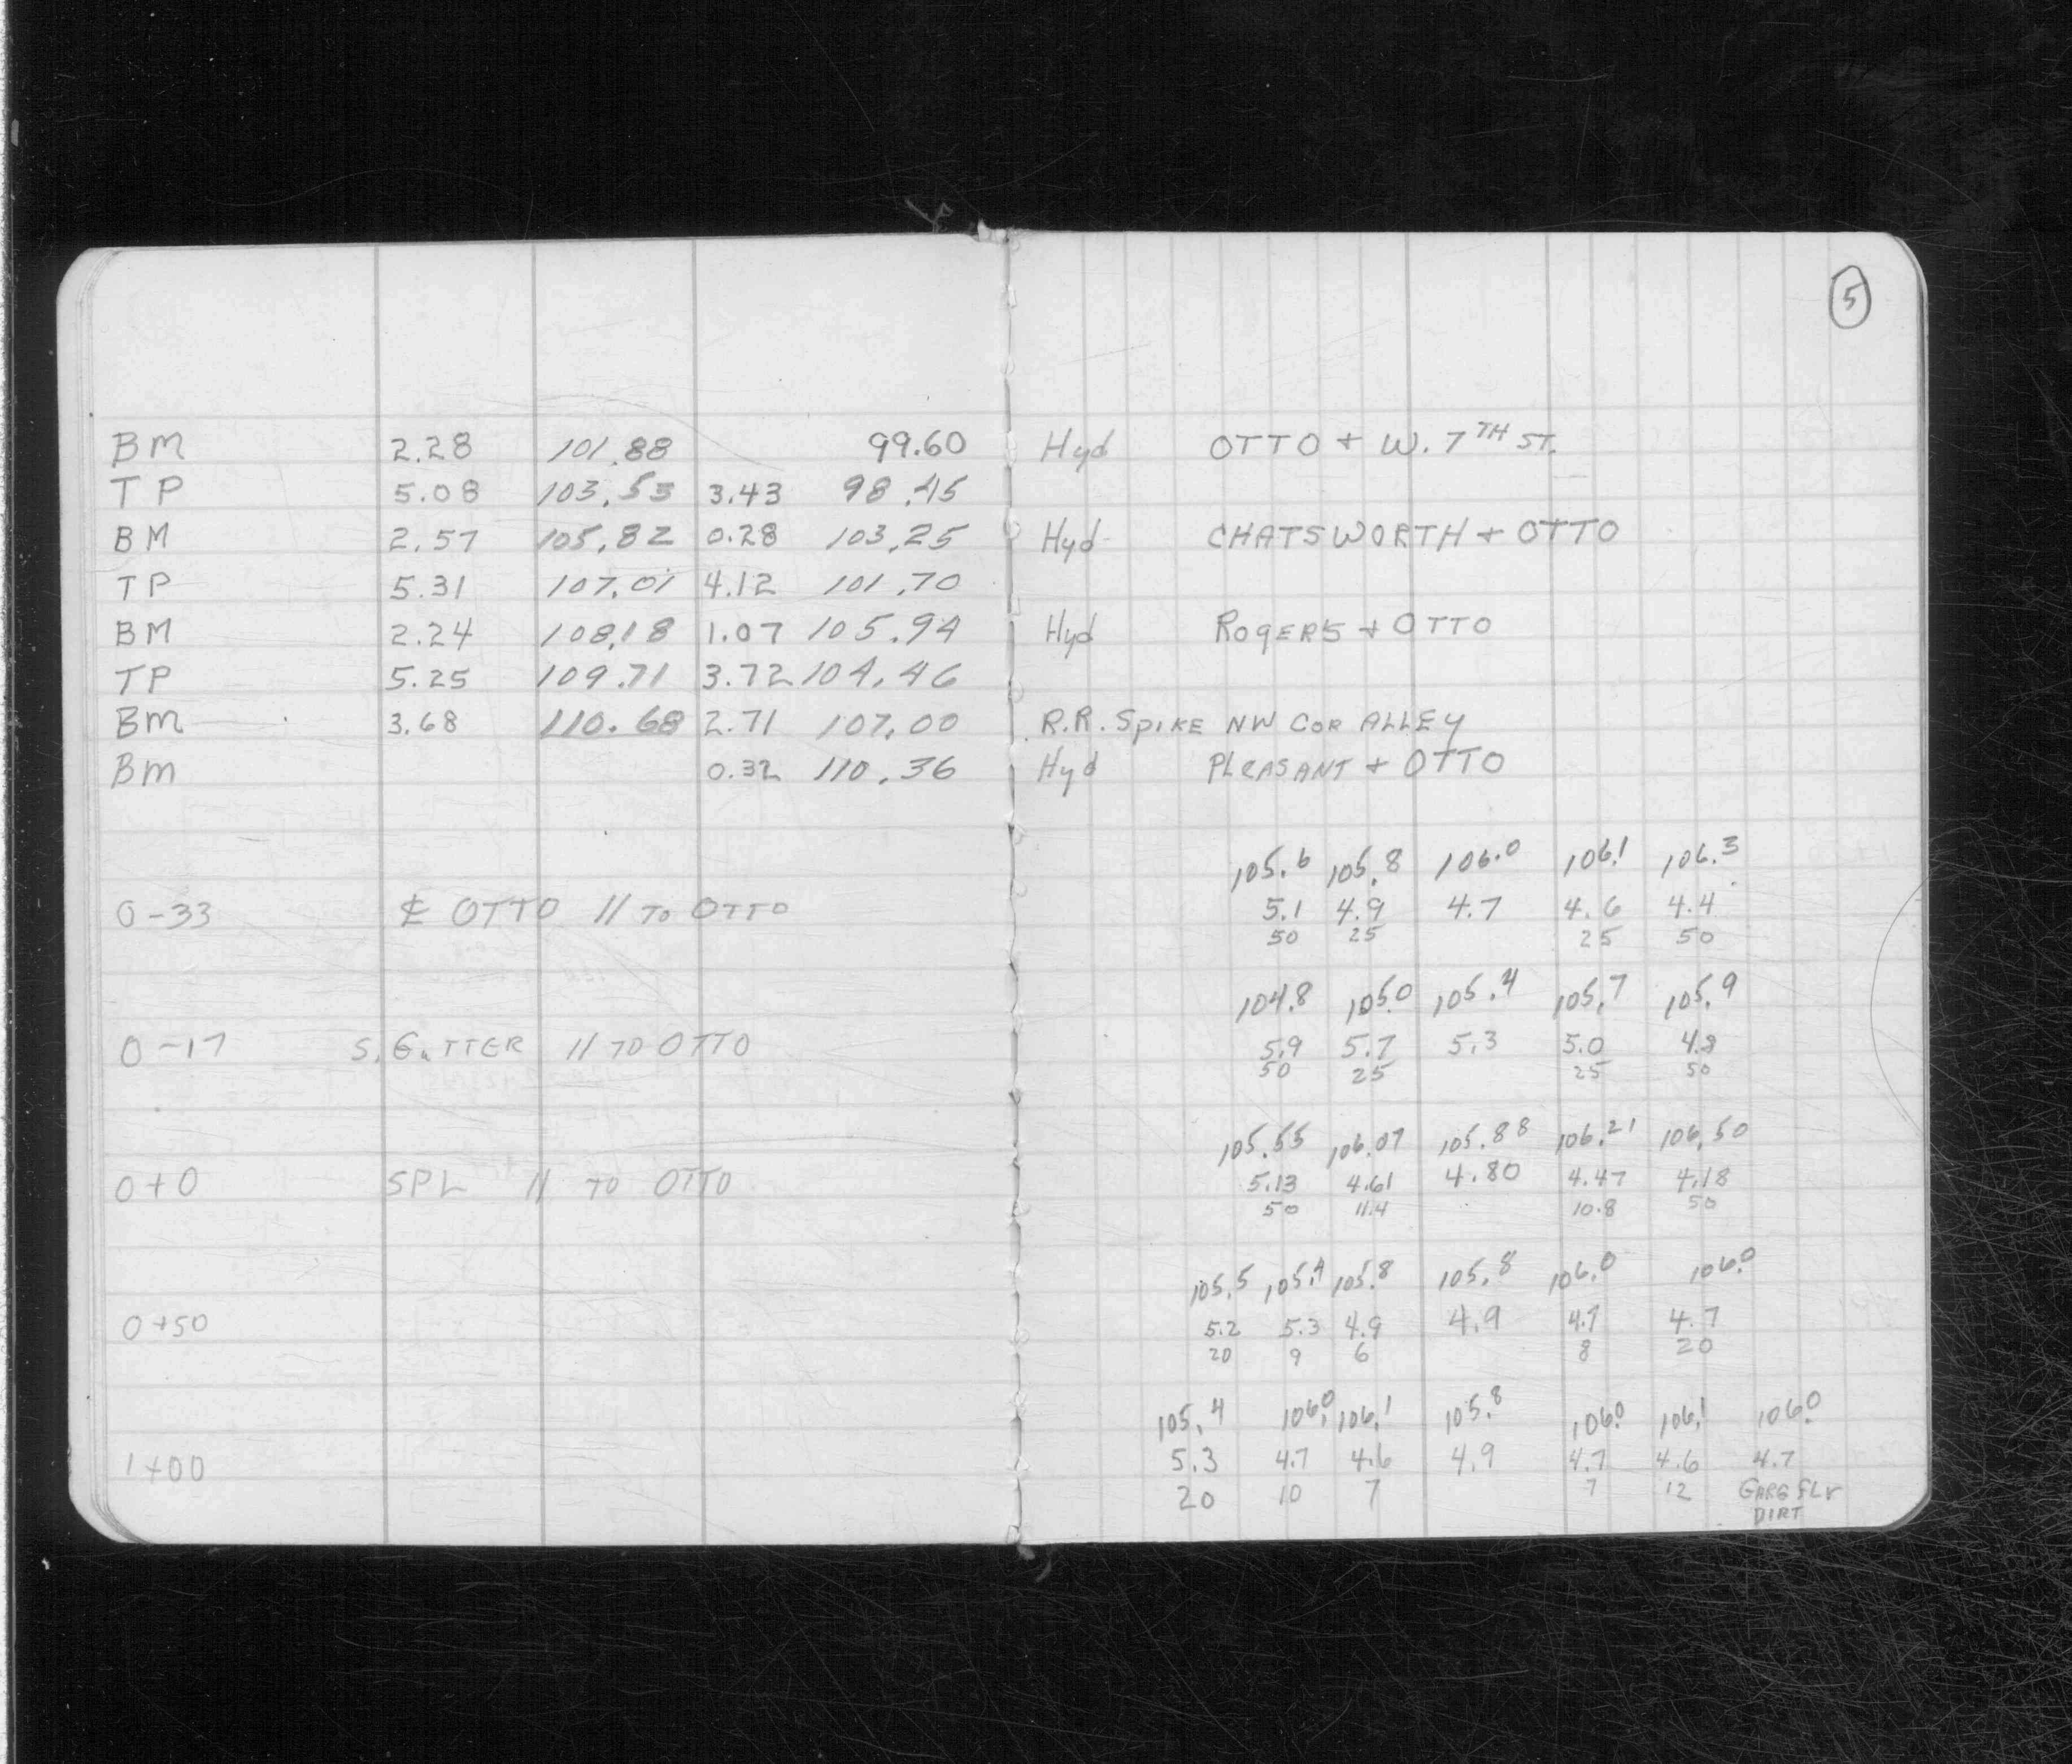 5
BM 2.28 101.88 99.60 Hyd OTTO + W. 7TH ST.
TP 5.08 103.53 3.43 98.45
BM 2.57 105.82 0.28 103.25 Hyd CHATSWORTH + OTTO
TP 5.31 107.01 4.12 101.70
BM 2.24 108.18 1.07 105.94 Hyd ROGERS + OTTO
TP 5.25 109.71 3.72 104.46
Bm 3.68 110.68 2.71 107.00 R.R. SPIKE NW COR ALLEY
Bm 0.32 110.36 Hyd PLEASANT + OTTO
105.6 105.8 106.0 106.1 106.3
0-33 ℄ OTTO // TO OTTO 5.1 4.9 4.7 4.6 4.4
50 25 25 50
104.8 105.0 105.4 105.7 105.9
0-17 S. GUTTER // TO OTTO 5.9 5.7 5.3 5.0 4.8
50 25 25 50
105.55 106.07 105.88 106.21 106.50
0+0 SPL // TO OTTO 5.13 4.61 4.80 4.47 4.18
50 11.4 10.8 50
105.5 105.4 105.8 105.8 106.0 106.0
0+50 5.2 5.3 4.9 4.9 4.7 4.7
20 9 6 8 20
105.4 106.0 106.1 105.8 106.0 106.1 106.0
1+00 5.3 4.7 4.6 4.9 4.7 4.6 4.7
20 10 7 7 12 GARG FLr
DIRT